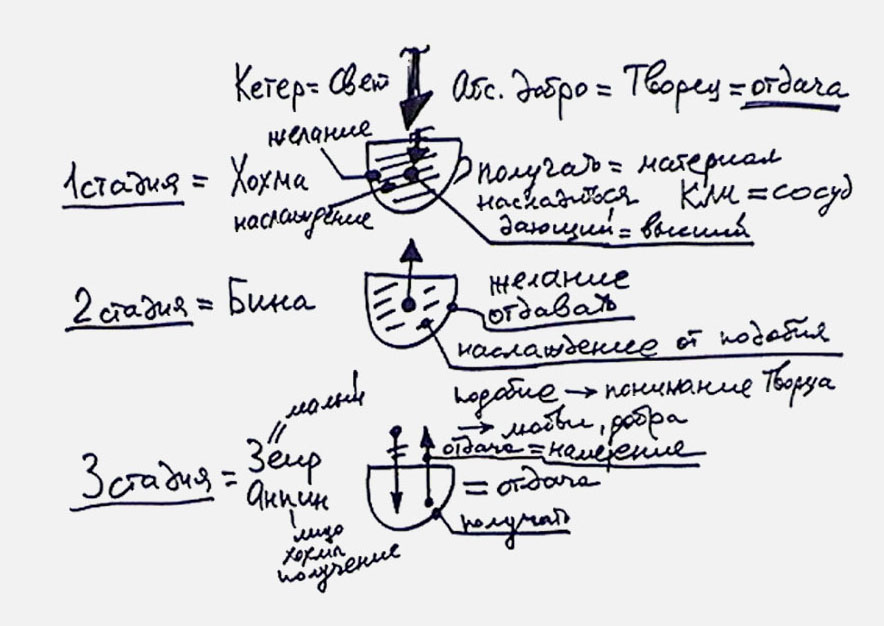 Кетер = Свет Абс. добро = Творец = отдача
желание
1 стадия = Хохма
наслаждение
получать = материал
насладиться Кли = сосуд
дающий = высший
2 стадия = Бина
желание
отдавать
наслаждение от подобия
подобие → понимание Творца
→ любви, добра
малый
3 стадия = Зеир
Анпин
лицо
хохма
получение
отдача = намерение
= отдача
получать